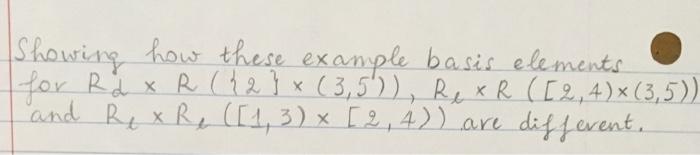 Showing how these example basis elements
for R_d x R ({2} x (3,5)), R_ℓ x R ([2,4)x(3,5))
and R_ℓ x R_ℓ ([1,3) x [2,4)) are different.